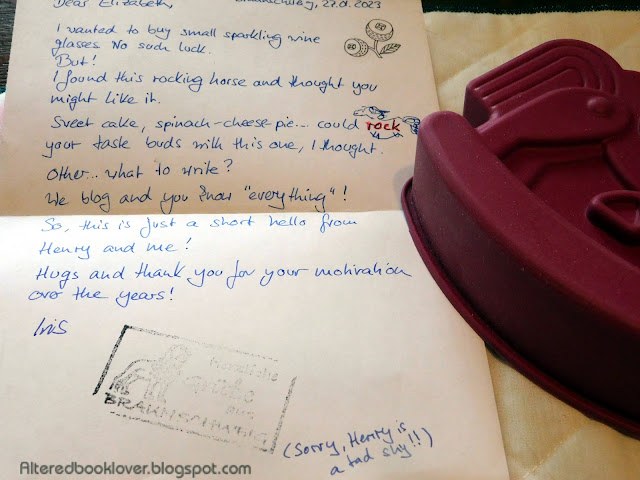 Dear Elizabeth, Braunschweig, 27.01.2023
I wanted to buy small sparkling wine
glasses. No such luck.
But!
I found this rocking horse and thought you
might like it.
Sweet cake, spinach-cheese-pie... could rock
your taste buds with this one, I thought.
Other... what to write?
We blog and you know "everything"!
So, this is just a short hello from
Henry and me!
Hugs and thank you for your motivation
over the years!
Iris
Herzliche
Grüße
aus
BRAUNSCHWEIG
(Sorry, Henry is
a tad shy!!)
Alteredbooklover.blogspot.com